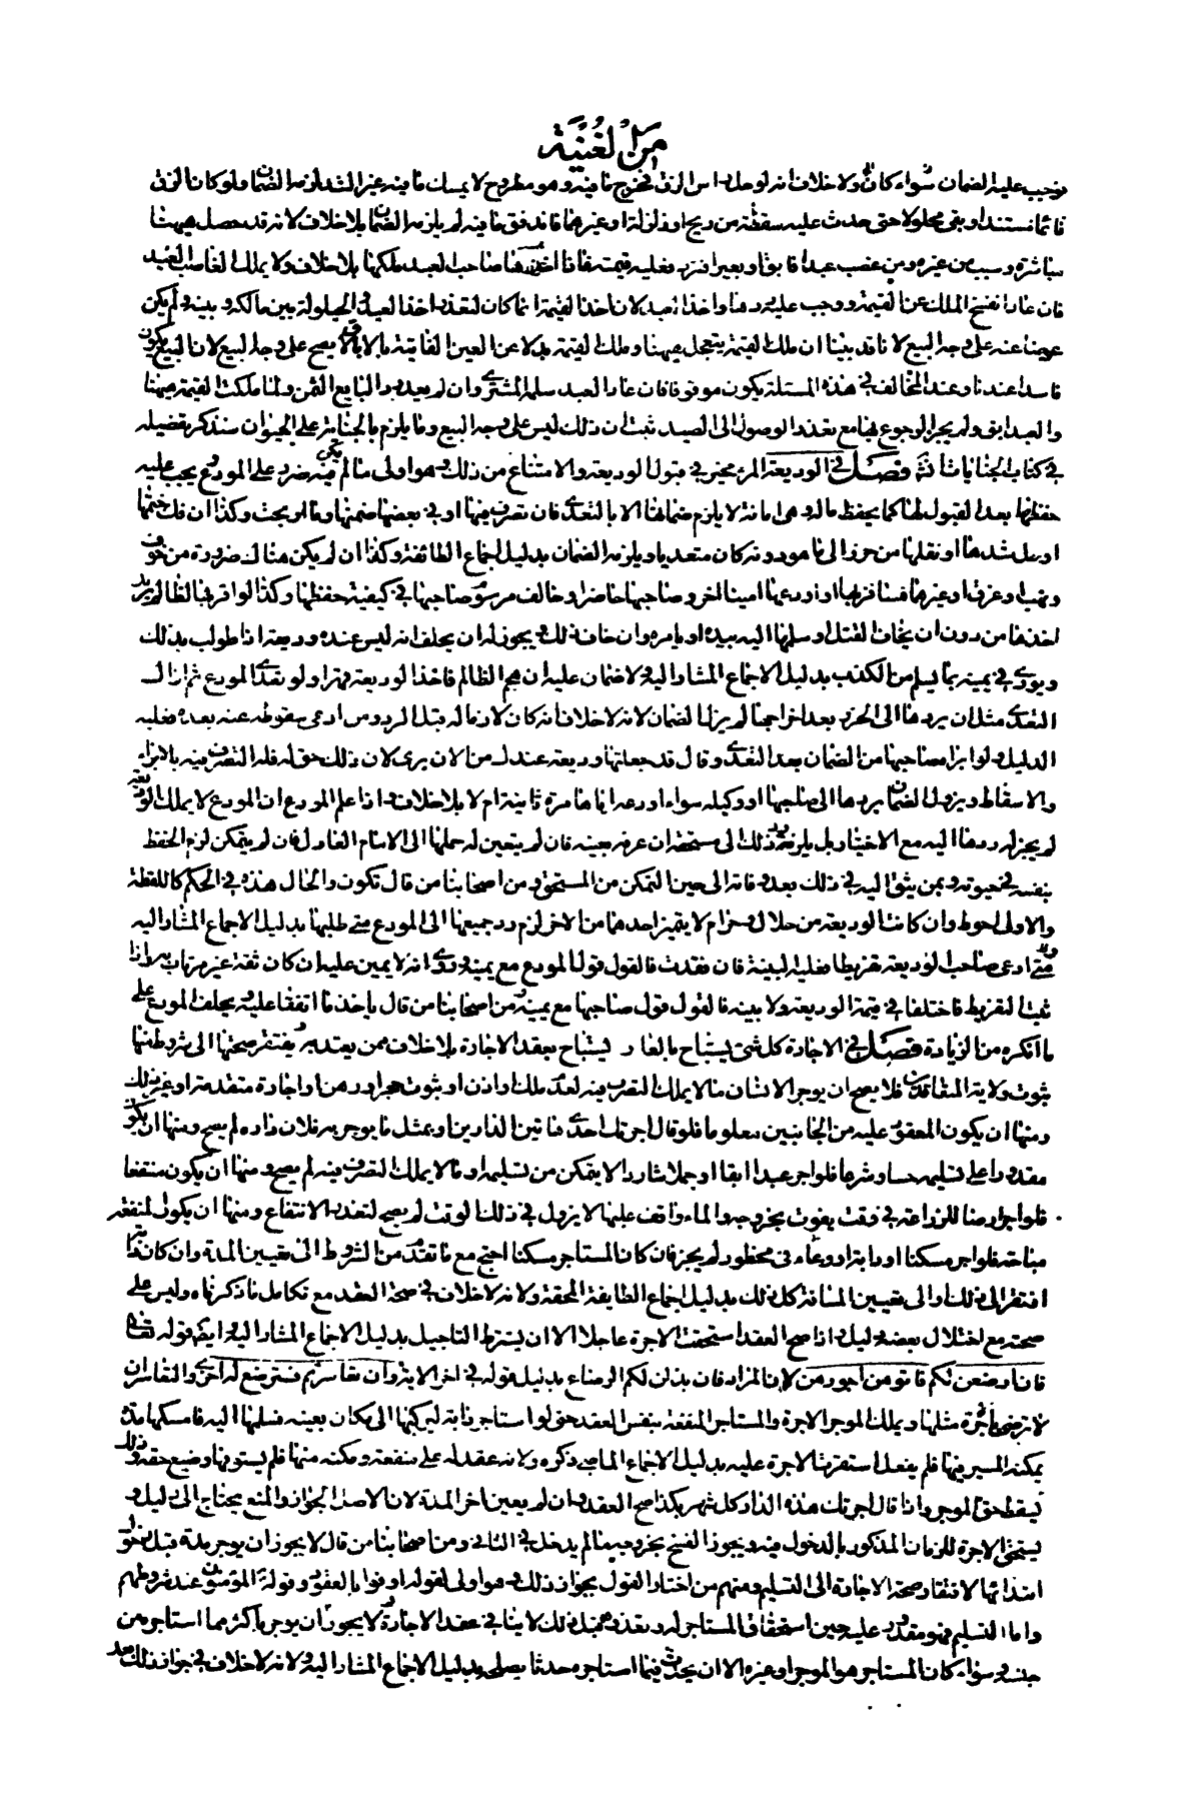 من الغنية
يوجب عليه الضمان سواء كان ولا خلاف انه لو حل راس الزق فخرج ما فيه وهو مطروح لا يمسك ما فيه غير الشد لزمه الضمان ولو كان الزق
قائما مستندا وبقي محلولا حتى حدث عليه سقطة من ريح او زلزلة او غيرهما فاندفق ما فيه لم يلزمه الضمان بلا خلاف لانه قد حصل هيهنا
مباشرة وسبب من غيره ومن غصب عبدا فابق او بعيرا فشرد فعليه قيمته فاذا اخذها صاحب العبد ملكها بلا خلاف ولا يملك الغاصب العبد
فان عاد انفسخ الملك عن القيمة ووجب عليه ردها واخذ العبد لان اخذ القيمة انما كان لتعذر اخذ العبد والحيلولة بين مالكه وبينه ولم يكن
عوضا عنه على وجه البيع لانا قد بينا ان ملك القيمة يتعجل هيهنا وملك القيمة بدلا عن العين الفائتة بالاباق لا يصح على وجه البيع لان البيع يكون
فاسدا عندنا وعند المخالف في هذه المسئلة يكون موقوفا فان عاد العبد سلمه المشتري وان لم يعد رد البايع الثمن ولما ملكت القيمة هيهنا
والعبد ابق ولم يجز الرجوع بها مع تعذر الوصول الى العبد ثبت ان ذلك ليس على وجه البيع وما يلزم بالجناية على الحيوان سنذكر تفصيله
في كتاب الجنايات انشاء الله فصل في الوديعة المرء مخير في قبول الوديعة والامتناع من ذلك وهو اولى ما لم يكن فيه ضرر على المودع يجب عليه
حفظها بعد القبول لها كما يحفظ ماله وهي امانة لا يلزم ضمانها الا بالتعدي فان تصرف فيها او في بعضها ضمنها وما ربحت وكذا ان فك ختمها
او حل شدها او نقلها من حرز الى ما هو دونه كان متعديا ويلزمه الضمان بدليل اجماع الطائفة وكذا ان لم يكن هناك ضرورة من خوف
ونهب او غرق او غيرهما فسافر بها او اودعها امينا اخر وصاحبها حاضر او خالف مرسوم صاحبها في كيفية حفظها وكذا لو اقر بها لظالم يريد
اخذها من دون ان يخاف القتل او سلمها اليه بيده او بامره وان خاف ذلك ويجوز له ان يحلف انه ليس عنده وديعة اذا طولب بذلك
ويوري في يمينه بما يسلم من الكذب بدليل الاجماع المشار اليه ولا ضمان عليه ان هجم الظالم فاخذ الوديعة قهرا ولو تعدى المودع ثم ازال
التعدي مثل ان يردها الى الحرز بعد اخراجها لم يزل الضمان لانه لا خلاف انه كان لازما له قبل الرد ومن ادعى سقوطه عنه بعده فعليه
الدليل ولو ابراه صاحبها من الضمان بعد التعدي وقال قد جعلتها وديعة عندك من الان برئ لان ذلك حق له فله التصرف فيه بالابراء
والاسقاط ويزول الضمان بردها الى صاحبها او وكيله سواء اودعه اياها مرة ثانية ام لا بلا خلاف واذا علم المودع ان المودع لا يملك الوديعة
لم يجز له ردها اليه مع الاختيار بل يلزمه رد ذلك الى مستحقه ان عرفه بعينه فان لم يتعين له حملها الى الامام العادل فان لم يتمكن لزمه الحفظ
بنفسه في حيوته وبمن يثق اليه في ذلك بعد وفاته الى حين التمكن من المستحق ومن اصحابنا من قال تكون والحال هذه في الحكم كاللقطة
والاولى احوط وان كانت الوديعة من حلال وحرام لا يتميز احدهما من الاخر لزم رد جميعها الى المودع متى طلبها بدليل الاجماع المشار اليه
ومتى ادعى صاحب الوديعة تفريطا فعليه البينة فان فقدت فالقول قول المودع مع يمينه وروي انه لا يمين عليه ان كان ثقة غير مرتاب به واذا
ثبت التفريط فاختلفا في قيمة الوديعة ولا بينة فالقول قول صاحبها مع يمينه ومن اصحابنا من قال ياخذ ما اتفقا عليه ويحلف المودع على
ما انكره من الزيادة فصل في الاجارة كل شئ يستباح بالعارية يستباح بعقد الاجارة بلا خلاف ممن يعتد به ويفتقر صحتها الى شروط منها
ثبوت ولاية المتعاقدين فلا يصح ان يوجر الانسان ما لا يملك التصرف فيه لعدم ملك او اذن او ثبوت حجر او رهن او اجارة متقدمة او غير ذلك
ومنها ان يكون المعقود عليه من الجانبين معلوما فلو قال اجرتك احدى هاتين الدارين او بمثل ما يوجر به فلان داره لم يصح ومنها ان يكون
مقدورا على تسليمه حسا وشرعا فلو اجر عبدا ابقا او جملا شاردا لا يتمكن من تسليمه او ما لا يملك التصرف فيه لم يصح ومنها ان يكون منتفعا
فلو اجر ارضا للزراعة في وقت يفوت بخروجه والماء واقف عليها لا يزول في ذلك الوقت لم يصح لتعذر الانتفاع ومنها ان يكون المنفعة
مباحة فلو اجر مسكنا او دابة او وعاء في محظور لم يجز فان كان المستاجر مسكنا احتيج مع ما تقدم من الشروط الى تعيين المدة وان كان دابة
افتقر الى ذلك او الى تعيين المسافة كل ذلك بدليل اجماع الطايفة المحقة ولانه لا خلاف في صحة العقد مع تكامل ما ذكرناه وليس على
صحته مع اختلال بعضه دليل واذا صح العقد استحقت الاجرة عاجلا الا ان يشترط التاجيل بدليل الاجماع المشار اليه وايضا قوله تعالى
فان ارضعن لكم فاتوهن اجورهن لان المراد فان بذلن لكم الرضاع بدليل قوله في اخر الاية وان تعاسرتم فسترضع له اخرى والتعاسر ان
لا ترضى باجرة مثلها ويملك الموجر الاجرة والمستاجر المنفعة بنفس العقد حتى لو استاجر دابة ليركبها الى مكان بعينه فسلمها اليه فامسكها مدة
يمكنه المسير فيها فلم يفعل استقرت الاجرة عليه بدليل الاجماع الماضي ذكره ولانه عقد له على منفعة ومكنه منها فلم يستوفها وضيع حقه وذلك
يسقط حق الموجر واذا قال اجرتك هذه الدار كل شهر بكذا صح العقد وان لم يعين اخر المدة لان الاصل الجواز والمنع يحتاج الى دليل و
يستحق الاجرة للزمان المذكور بالدخول فيه ويجوز الفسخ بخروجه ما لم يدخل في الثاني ومن اصحابنا من قال لا يجوز ان يوجر مدة قبل دخول
ابتدائها لافتقار صحة الاجارة الى التسليم ومنهم من اختار القول بجواز ذلك وهو اولى لقوله اوفوا بالعقود وقوله المؤمنون عند شروطهم
واما التسليم فهو مقدور عليه حين استحقاق المستاجر له وتعذره قبل ذلك لا ينافي عقد الاجارة ولا يجوز ان يوجر باكثر مما استاجره من
جنسه سواء كان المستاجر هو الموجر او غيره الا ان يحدث فيما استاجره حدثا يصلحه بدليل الاجماع المشار اليه ولانه لا خلاف في جواز ذلك بعد